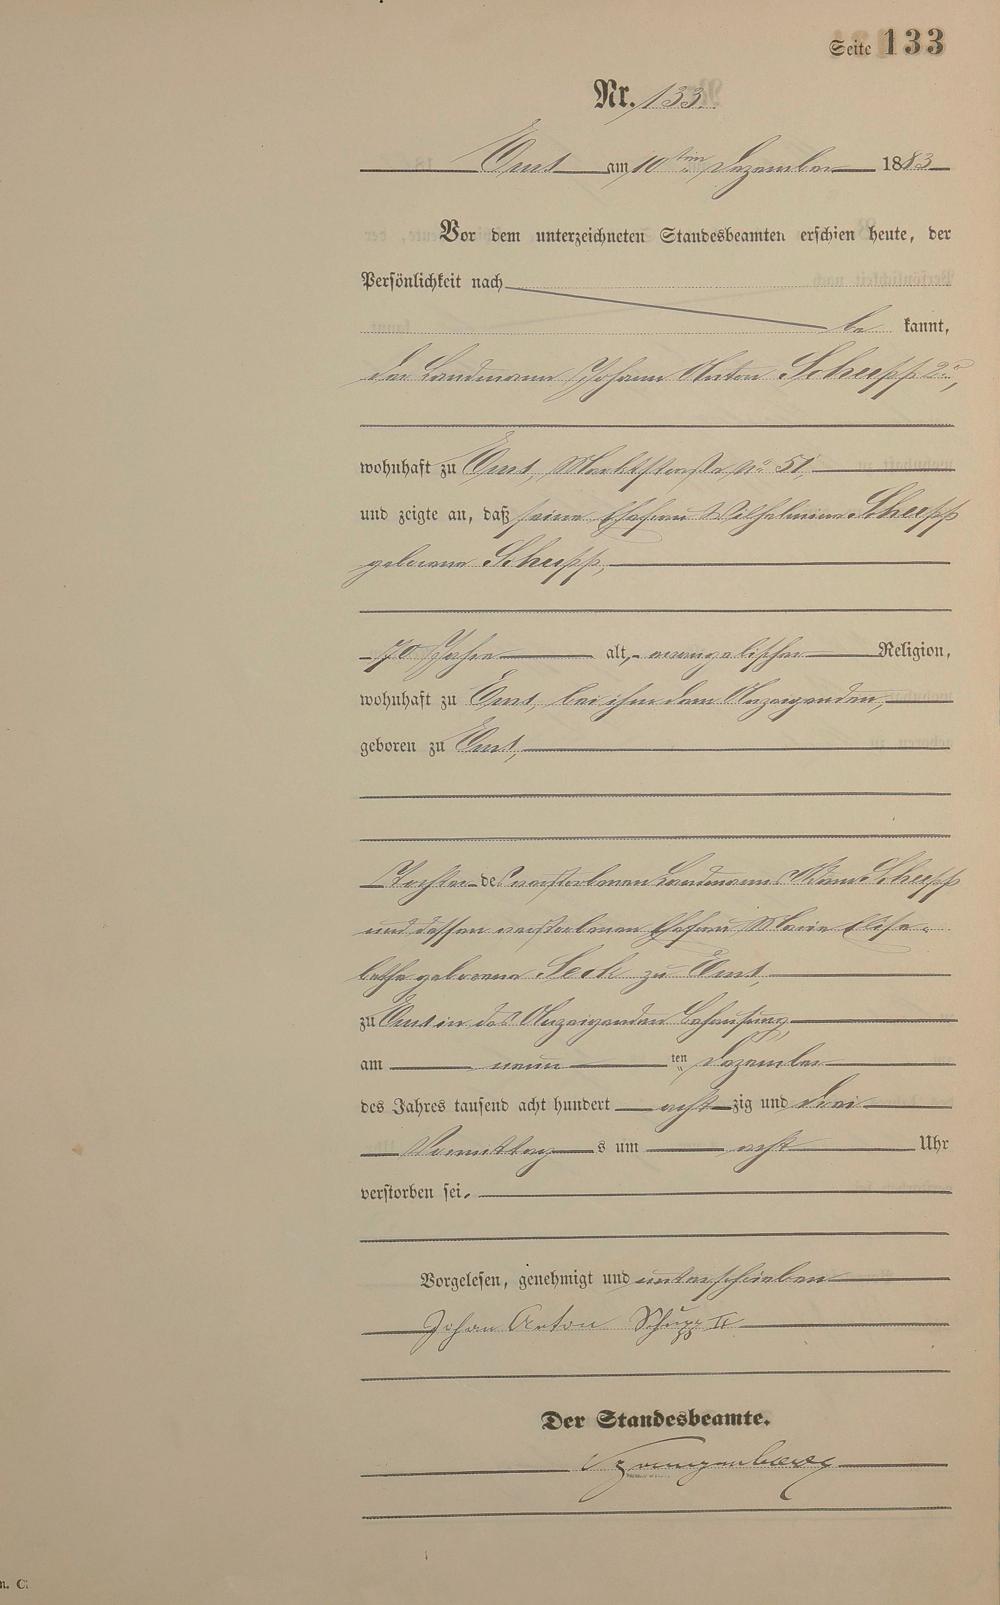 Seite 133
Nr. 133.
Ems am 10ten Dezember 1883
Vor dem unterzeichneten Standesbeamten erschien heute, der
Persönlichkeit nach
be kannt,
der Landmann Johann Anton Schupp 2r,
wohnhaft zu Ems, Marktstraße No 51,
und zeigte an, daß seine Ehefrau Wilhelmine Schupp
geborene Schupp,
70 Jahre alt, evangelischer Religion,
wohnhaft zu Ems, bei ihm dem Anzeigenden,
geboren zu Ems,
Tochter des verstorbenen Landmanns Adam Schupp
und dessen verstorbenen Ehefrau Marie Elisa-
betha geborene Seck zu Ems,
zu Ems in des Anzeigenden Behausung,
am neun ten Dezember
des Jahres tausend acht hundert acht zig und drei
Vormittag s um acht Uhr
verstorben sei.
Vorgelesen, genehmigt und unterschrieben
Johan Anton Schupp II
Der Standesbeamte.
n. C.